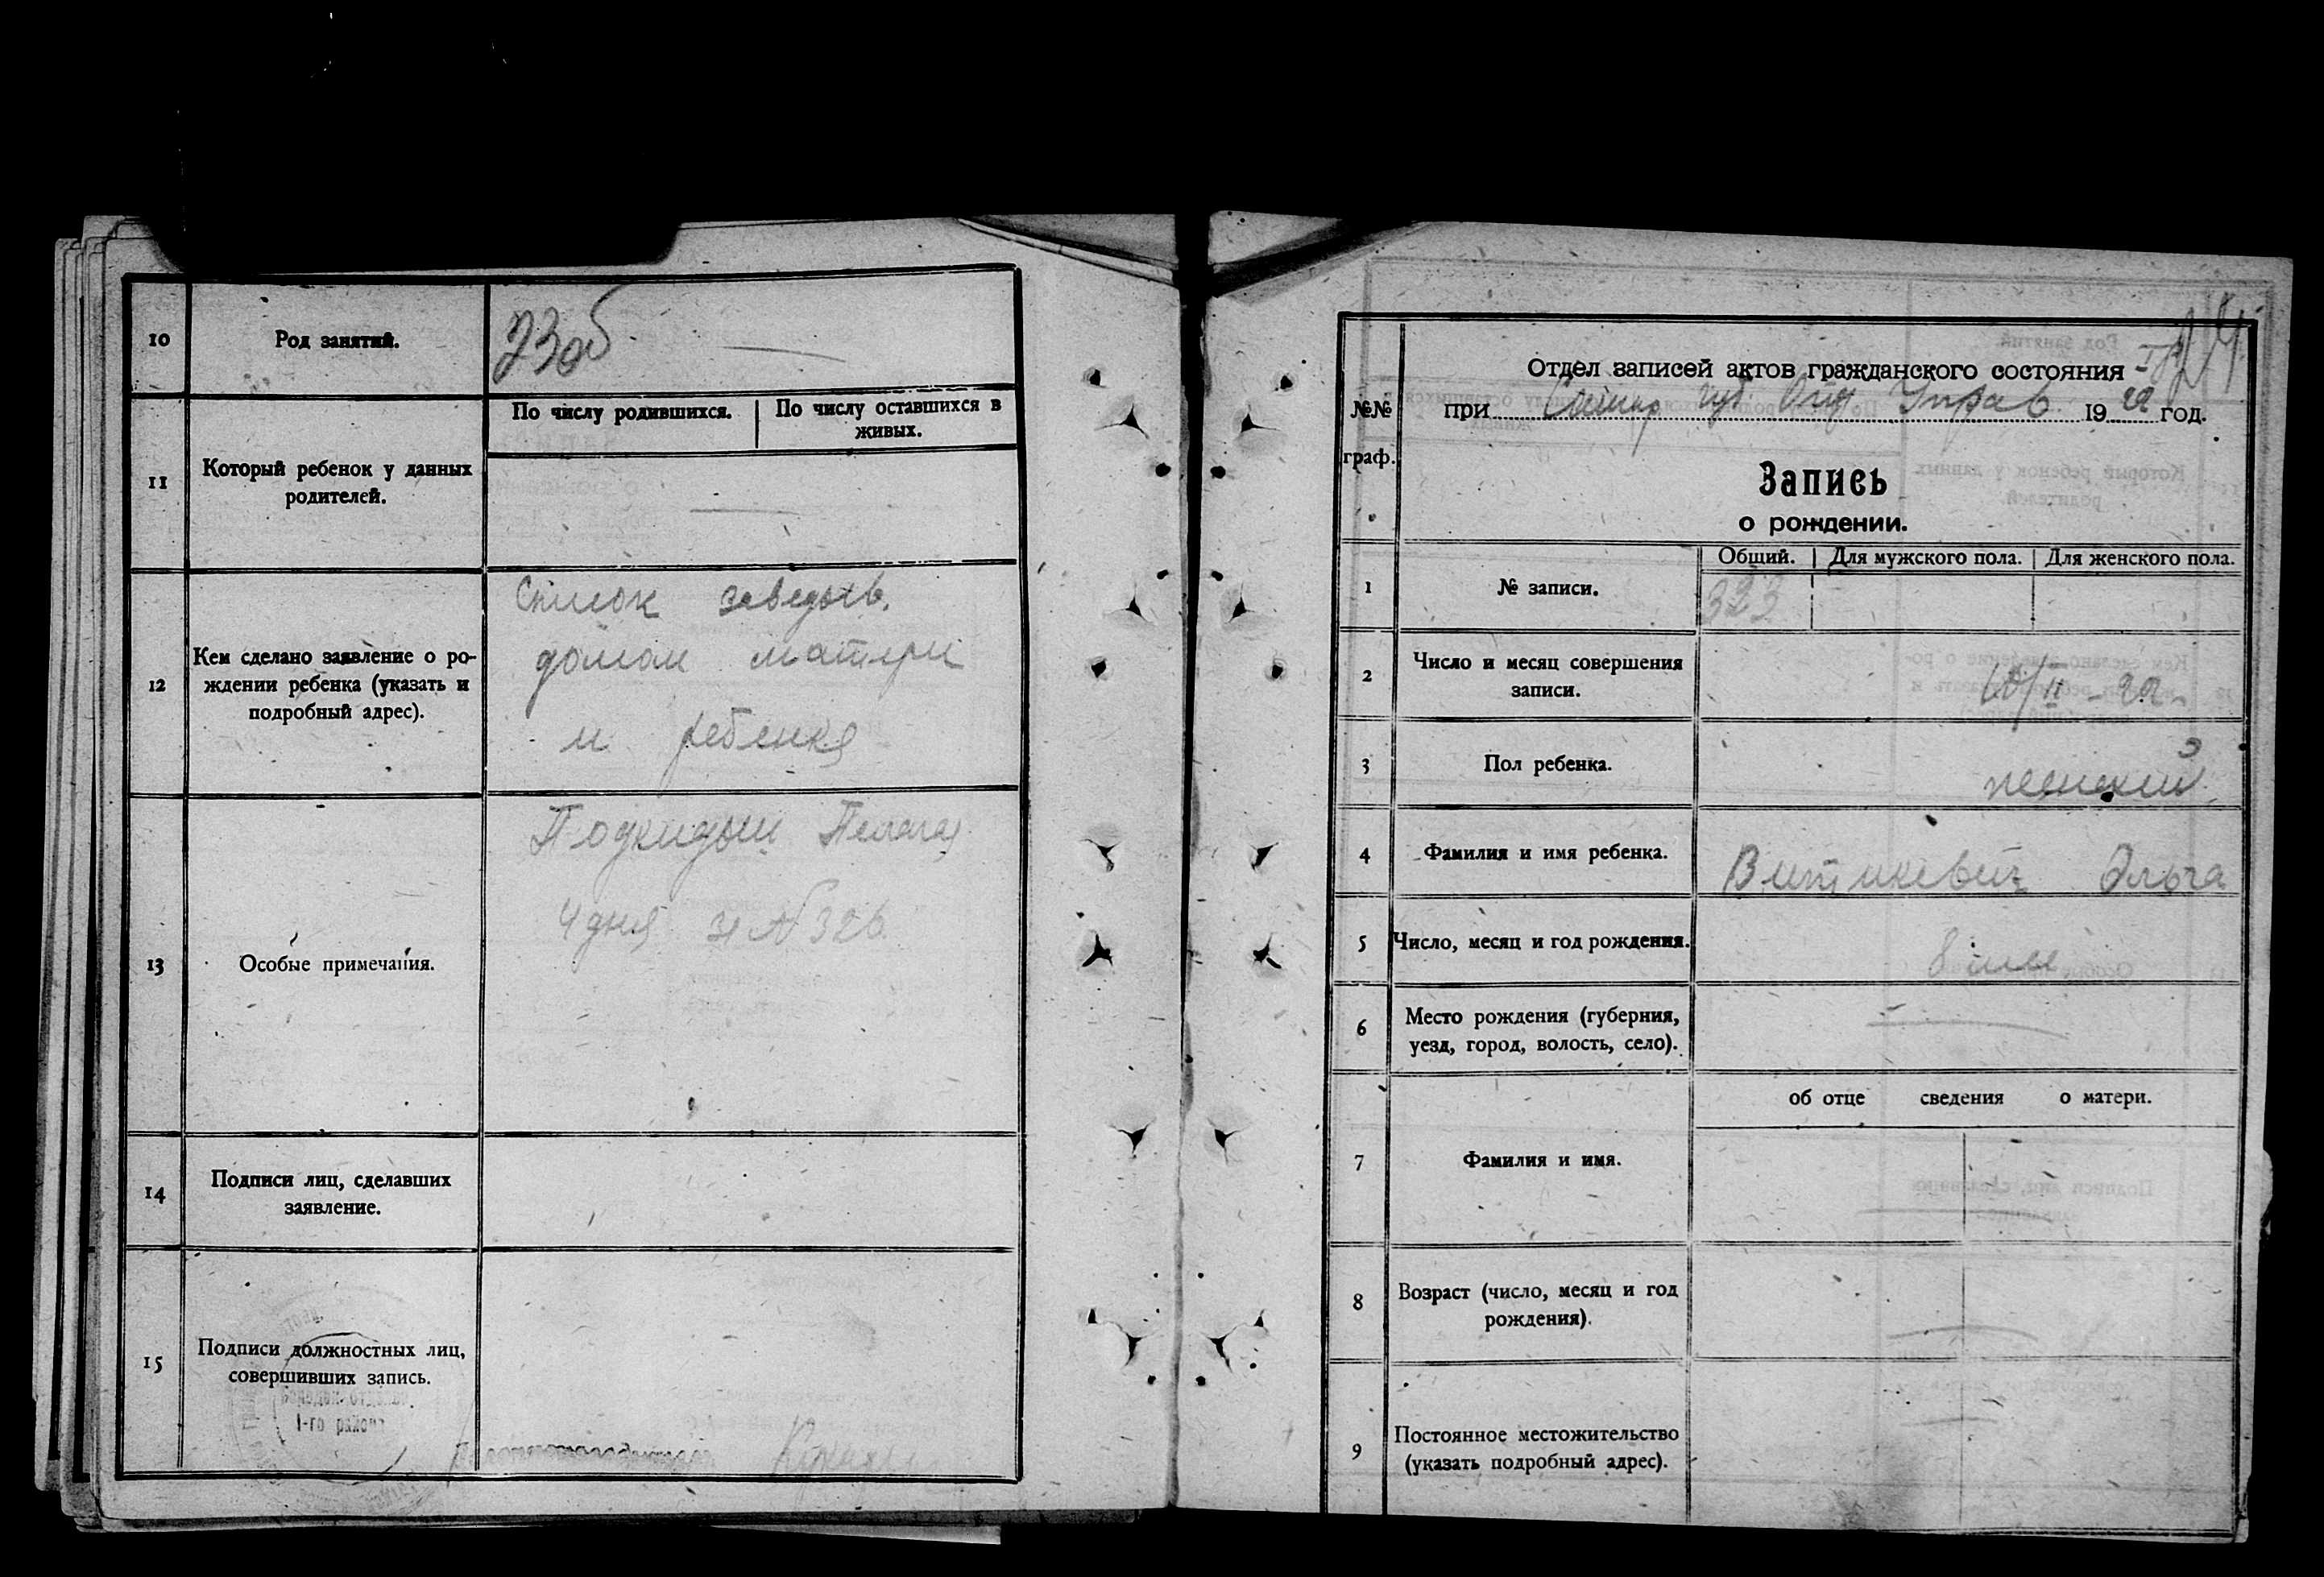 10
Род занятий.
23об
11
Который ребенок у данных
родителей.
По числу родившихся.
По числу оставшихся в
живых.
12
Кем сделано заявление о ро-
ждении ребенка (указать и
подробный адрес).
Список заведыв.
домом матери
и ребенка
13
Особые примечания.
Подкидыш
4 дня № 326
14
Подписи лиц, сделавших
заявление.
15
Подписи должностных лиц,
совершивших запись.
1-го района
24
№№
граф.
Отдел записей актов гражданского состояния
при Губ. Отд. Управ 1922 год.
Запись
о рождении.
1
№ записи.
Общий.
Для мужского пола.
Для женского пола.
323
2
Число и месяц совершения
записи.
10/II - 22
3
Пол ребенка.
женский
4
Фамилия и имя ребенка.
Витикевич Ольга
5
Число, месяц и год рождения.
8 мес
6
Место рождения (губерния,
уезд, город, волость, село).
об отце сведения о матери.
7
Фамилия и имя.
8
Возраст (число, месяц и год
рождения).
9
Постоянное местожительство
(указать подробный адрес).